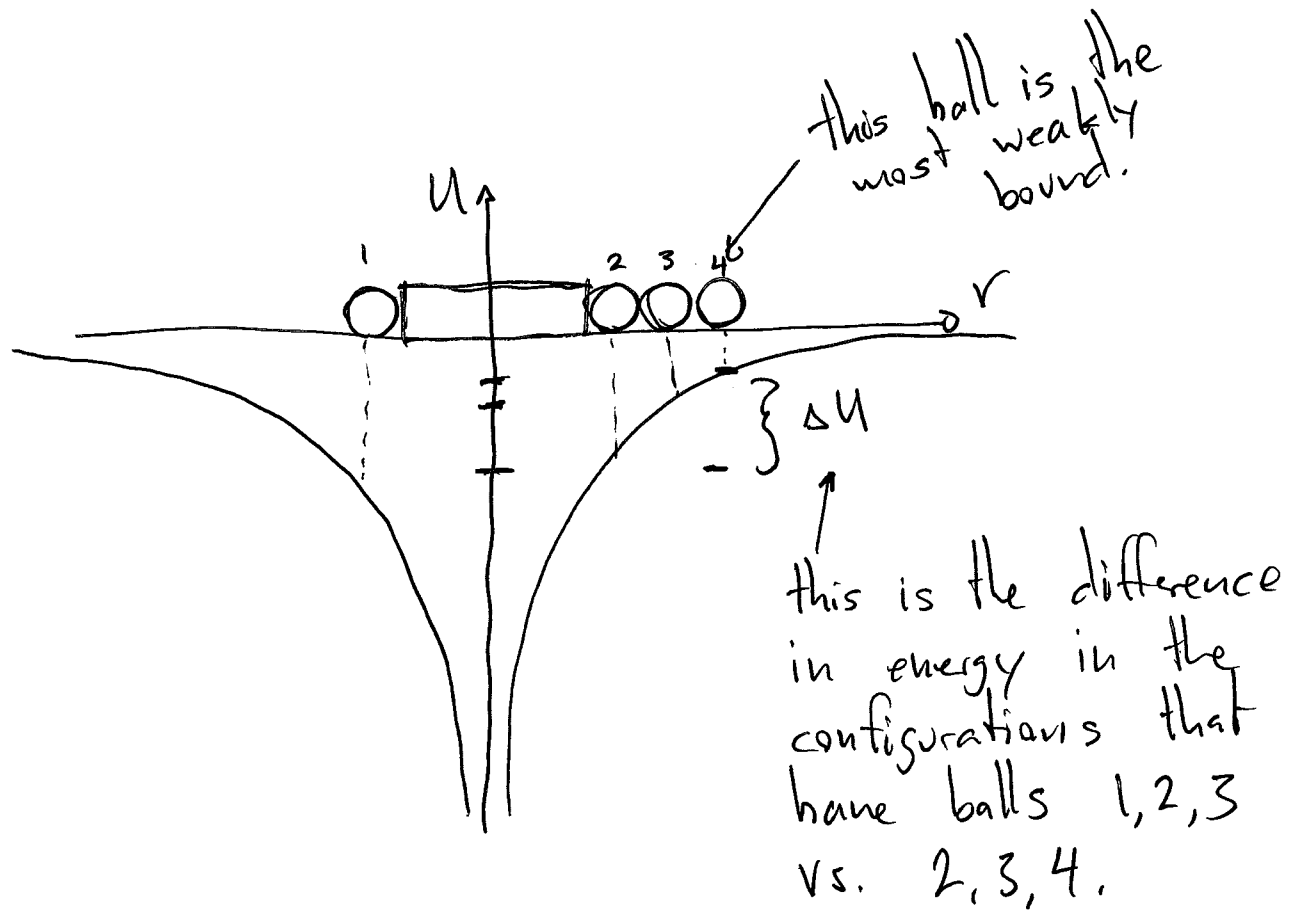 this ball is the
most weakly
bound.
U
1
2 3 4
r
ΔU
this is the difference
in energy in the
configurations that
have balls 1,2,3
vs. 2,3,4.